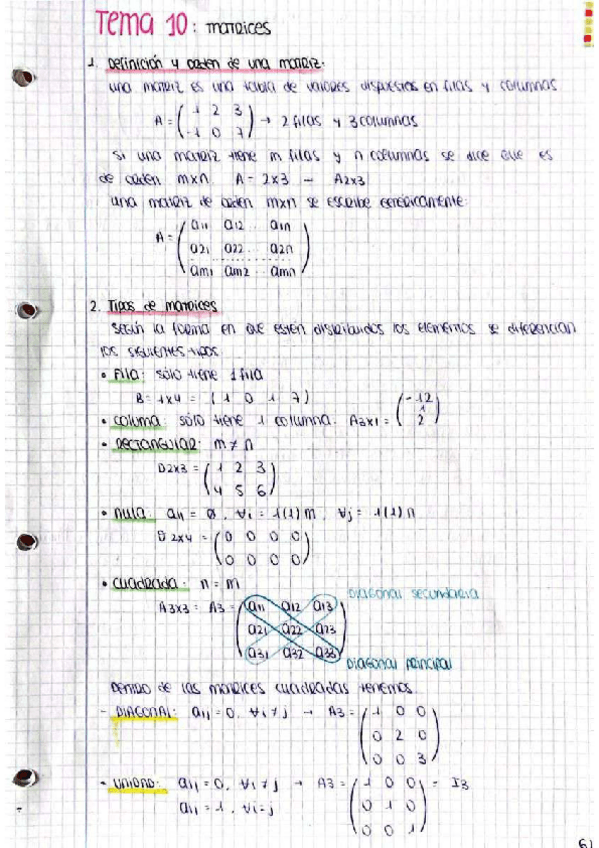 Tema 10: matrices
1. Definición y orden de una matriz.
una matriz es una tabla de valores dispuestos en filas y columnas
A = ( 1 2 3 / -1 0 7 ) → 2 filas y 3 columnas
si una matriz tiene m filas y n columnas se dice que es
de orden mxn. A = 2x3 – A2x3
una matriz de orden mxn se escribe genéricamente:
A = ( a11 a12 .. a1n
a21 a22 .. a2n
am1 am2 .. amn )
2. Tipos de matrices
según la forma en que estén distribuidos los elementos se diferencian
los siguientes tipos
• Fila: sólo tiene 1 fila
B = 1x4 = ( 1 0 1 7 )
• columa: sólo tiene 1 columna. A3x1 = ( -12 / 1 / 2 )
• rectangular: m ≠ n
D2x3 = ( 1 2 3
4 5 6 )
• nula: aij = 0, ∀i = 1(1)m, ∀j = 1(1)n
2x4 = ( 0 0 0 0
0 0 0 0 )
• cuadrada: n = m
Diagonal secundaria
A3x3 = A3 = ( a11 a12 a13
a21 a22 a23
a31 a32 a33 )
Diagonal principal
Dentro de las matrices cuadradas tenemos
- DIAGONAL: aij = 0, ∀i ≠ j → A3 = ( 1 0 0
0 2 0
0 0 3 )
- UNIDAD: aij = 0, ∀i ≠ j → A3 = ( 1 0 0 = I3
aij = 1, ∀i = j 0 1 0
0 0 1 )